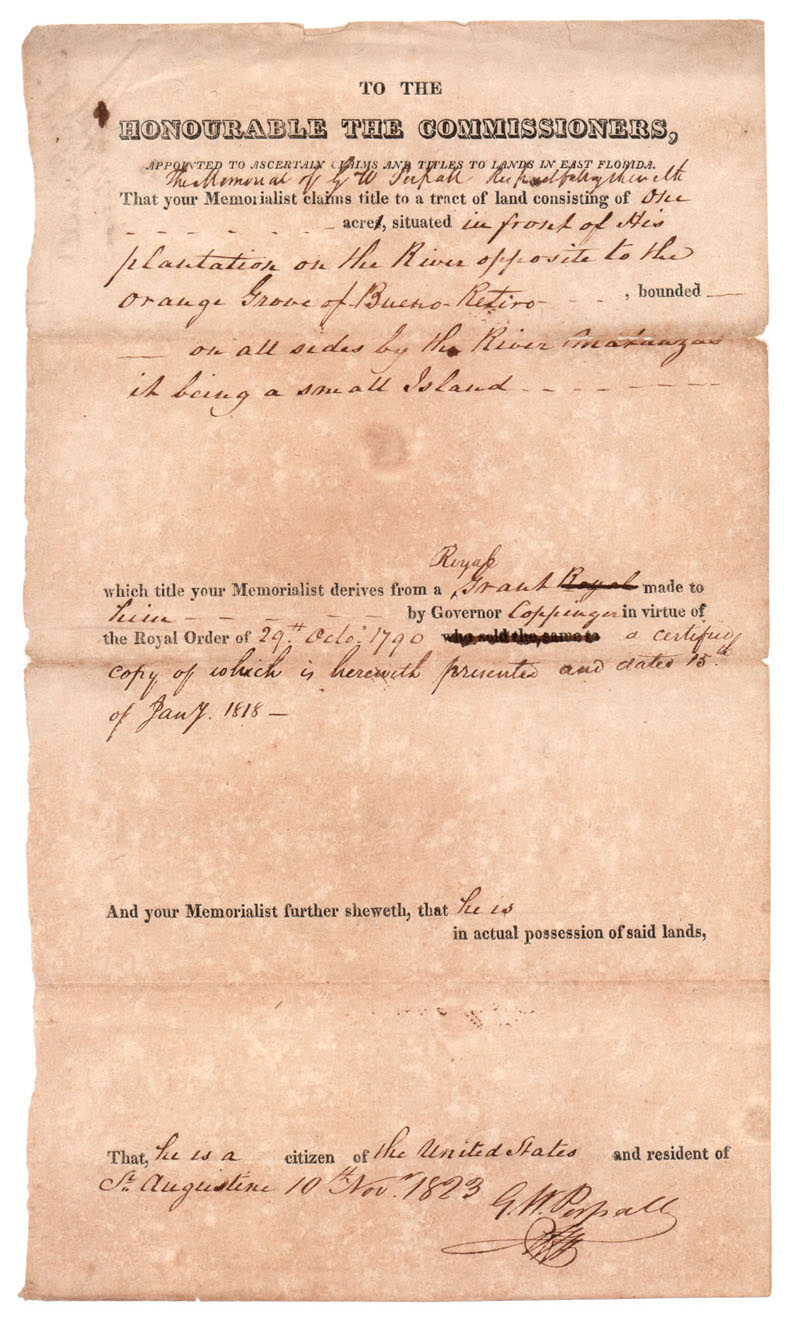 TO THE
HONOURABLE THE COMMISSIONERS,
APPOINTED TO ASCERTAIN CLAIMS AND TITLES TO LANDS IN EAST FLORIDA.
The Memorial of G W Perpall Respectfully sheweth
That your Memorialist claims title to a tract of land consisting of One
- - - - - - acre, situated in front of His
plantation on the River opposite to the
Orange Grove of Bueno Retiro - - , bounded —
— on all sides by the River Matanzas
it being a small Island - - - - - - -
Royal
which title your Memorialist derives from a Grant Royal made to
him - - - - - - by Governor Coppinger in virtue of
the Royal Order of 29th Octo. 1790 who sold the same to a certified
copy of which is herewith presented and dated 15th
of Jany. 1818 —
And your Memorialist further sheweth, that he is
in actual possession of said lands,
That, he is a citizen of the United States and resident of
St. Augustine 10th Novr. 1823
G. W. Perpall